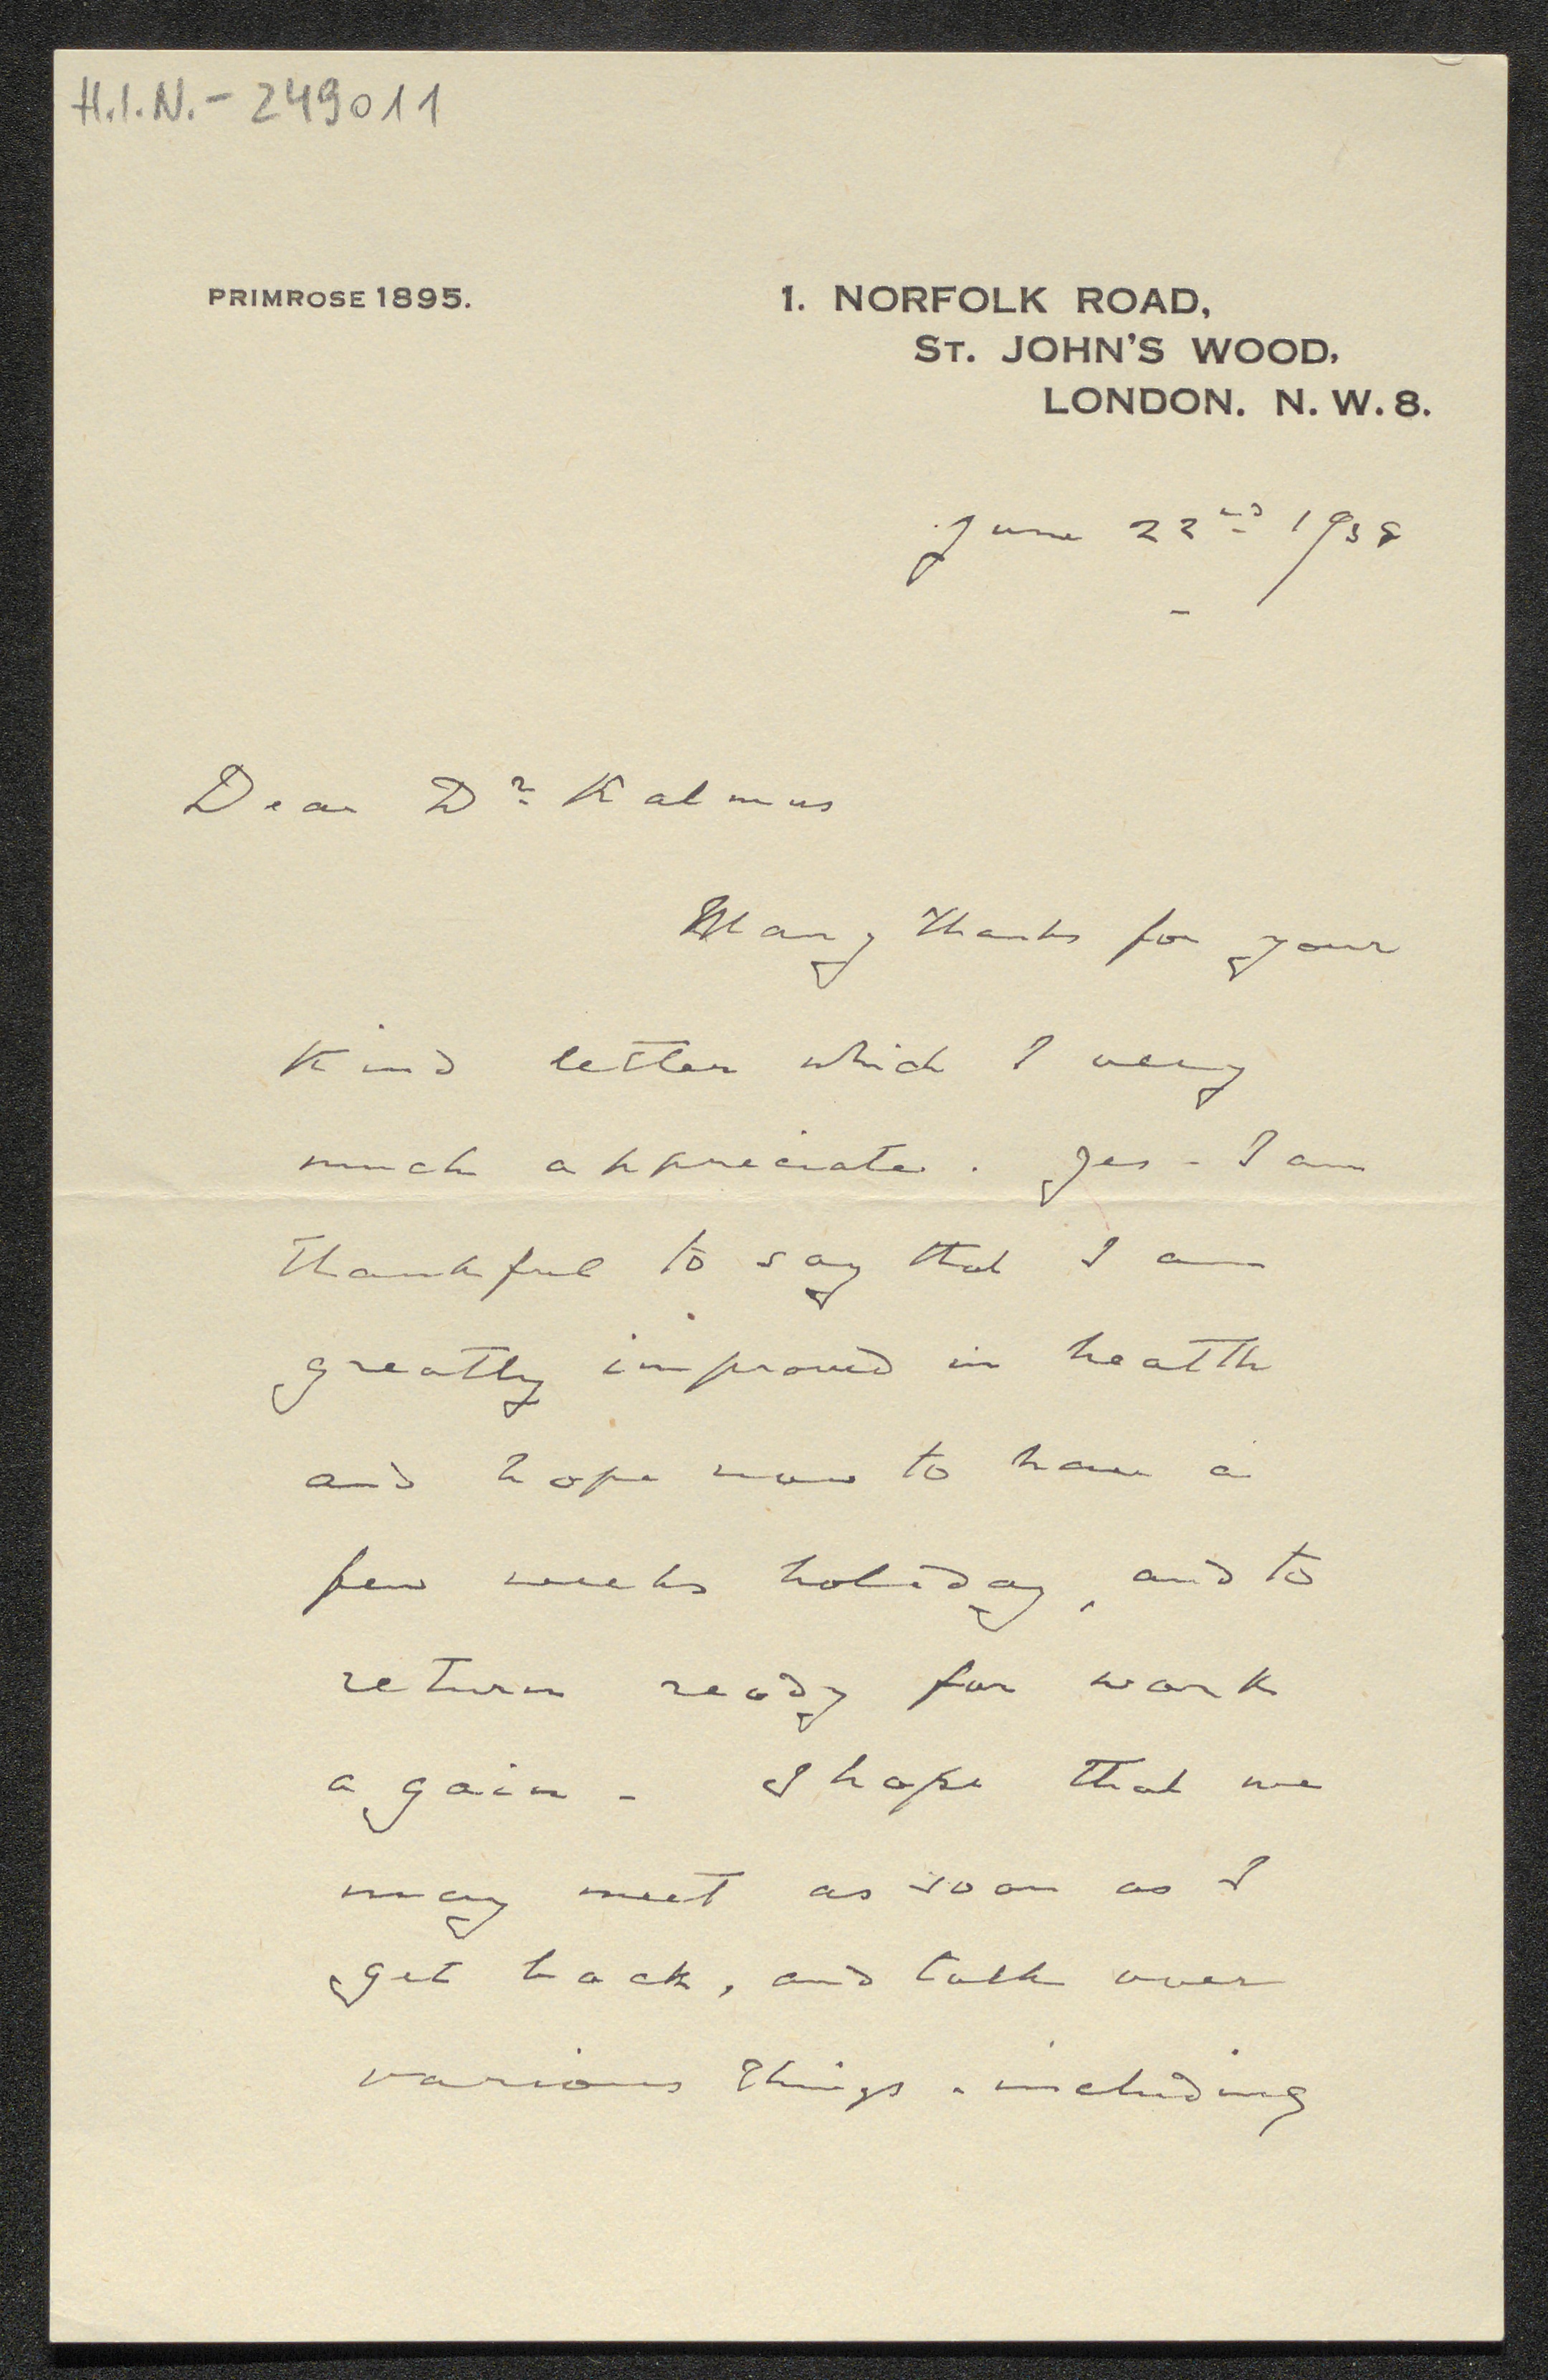 H.I.N.- 249011
PRIMROSE 1895.
1. NORFOLK ROAD,
ST. JOHN'S WOOD,
LONDON. N. W. 8.
June 22nd 1938
Dear Dr. Kalmus
Many thanks for your
kind letter which I very
much appreciate. Yes - I am
thankful to say that I am
greatly improved in health
and hope now to have a
few weeks holiday, and to
return ready for work
again - I hope that we
may meet as soon as I
get back, and talk over
various things - including